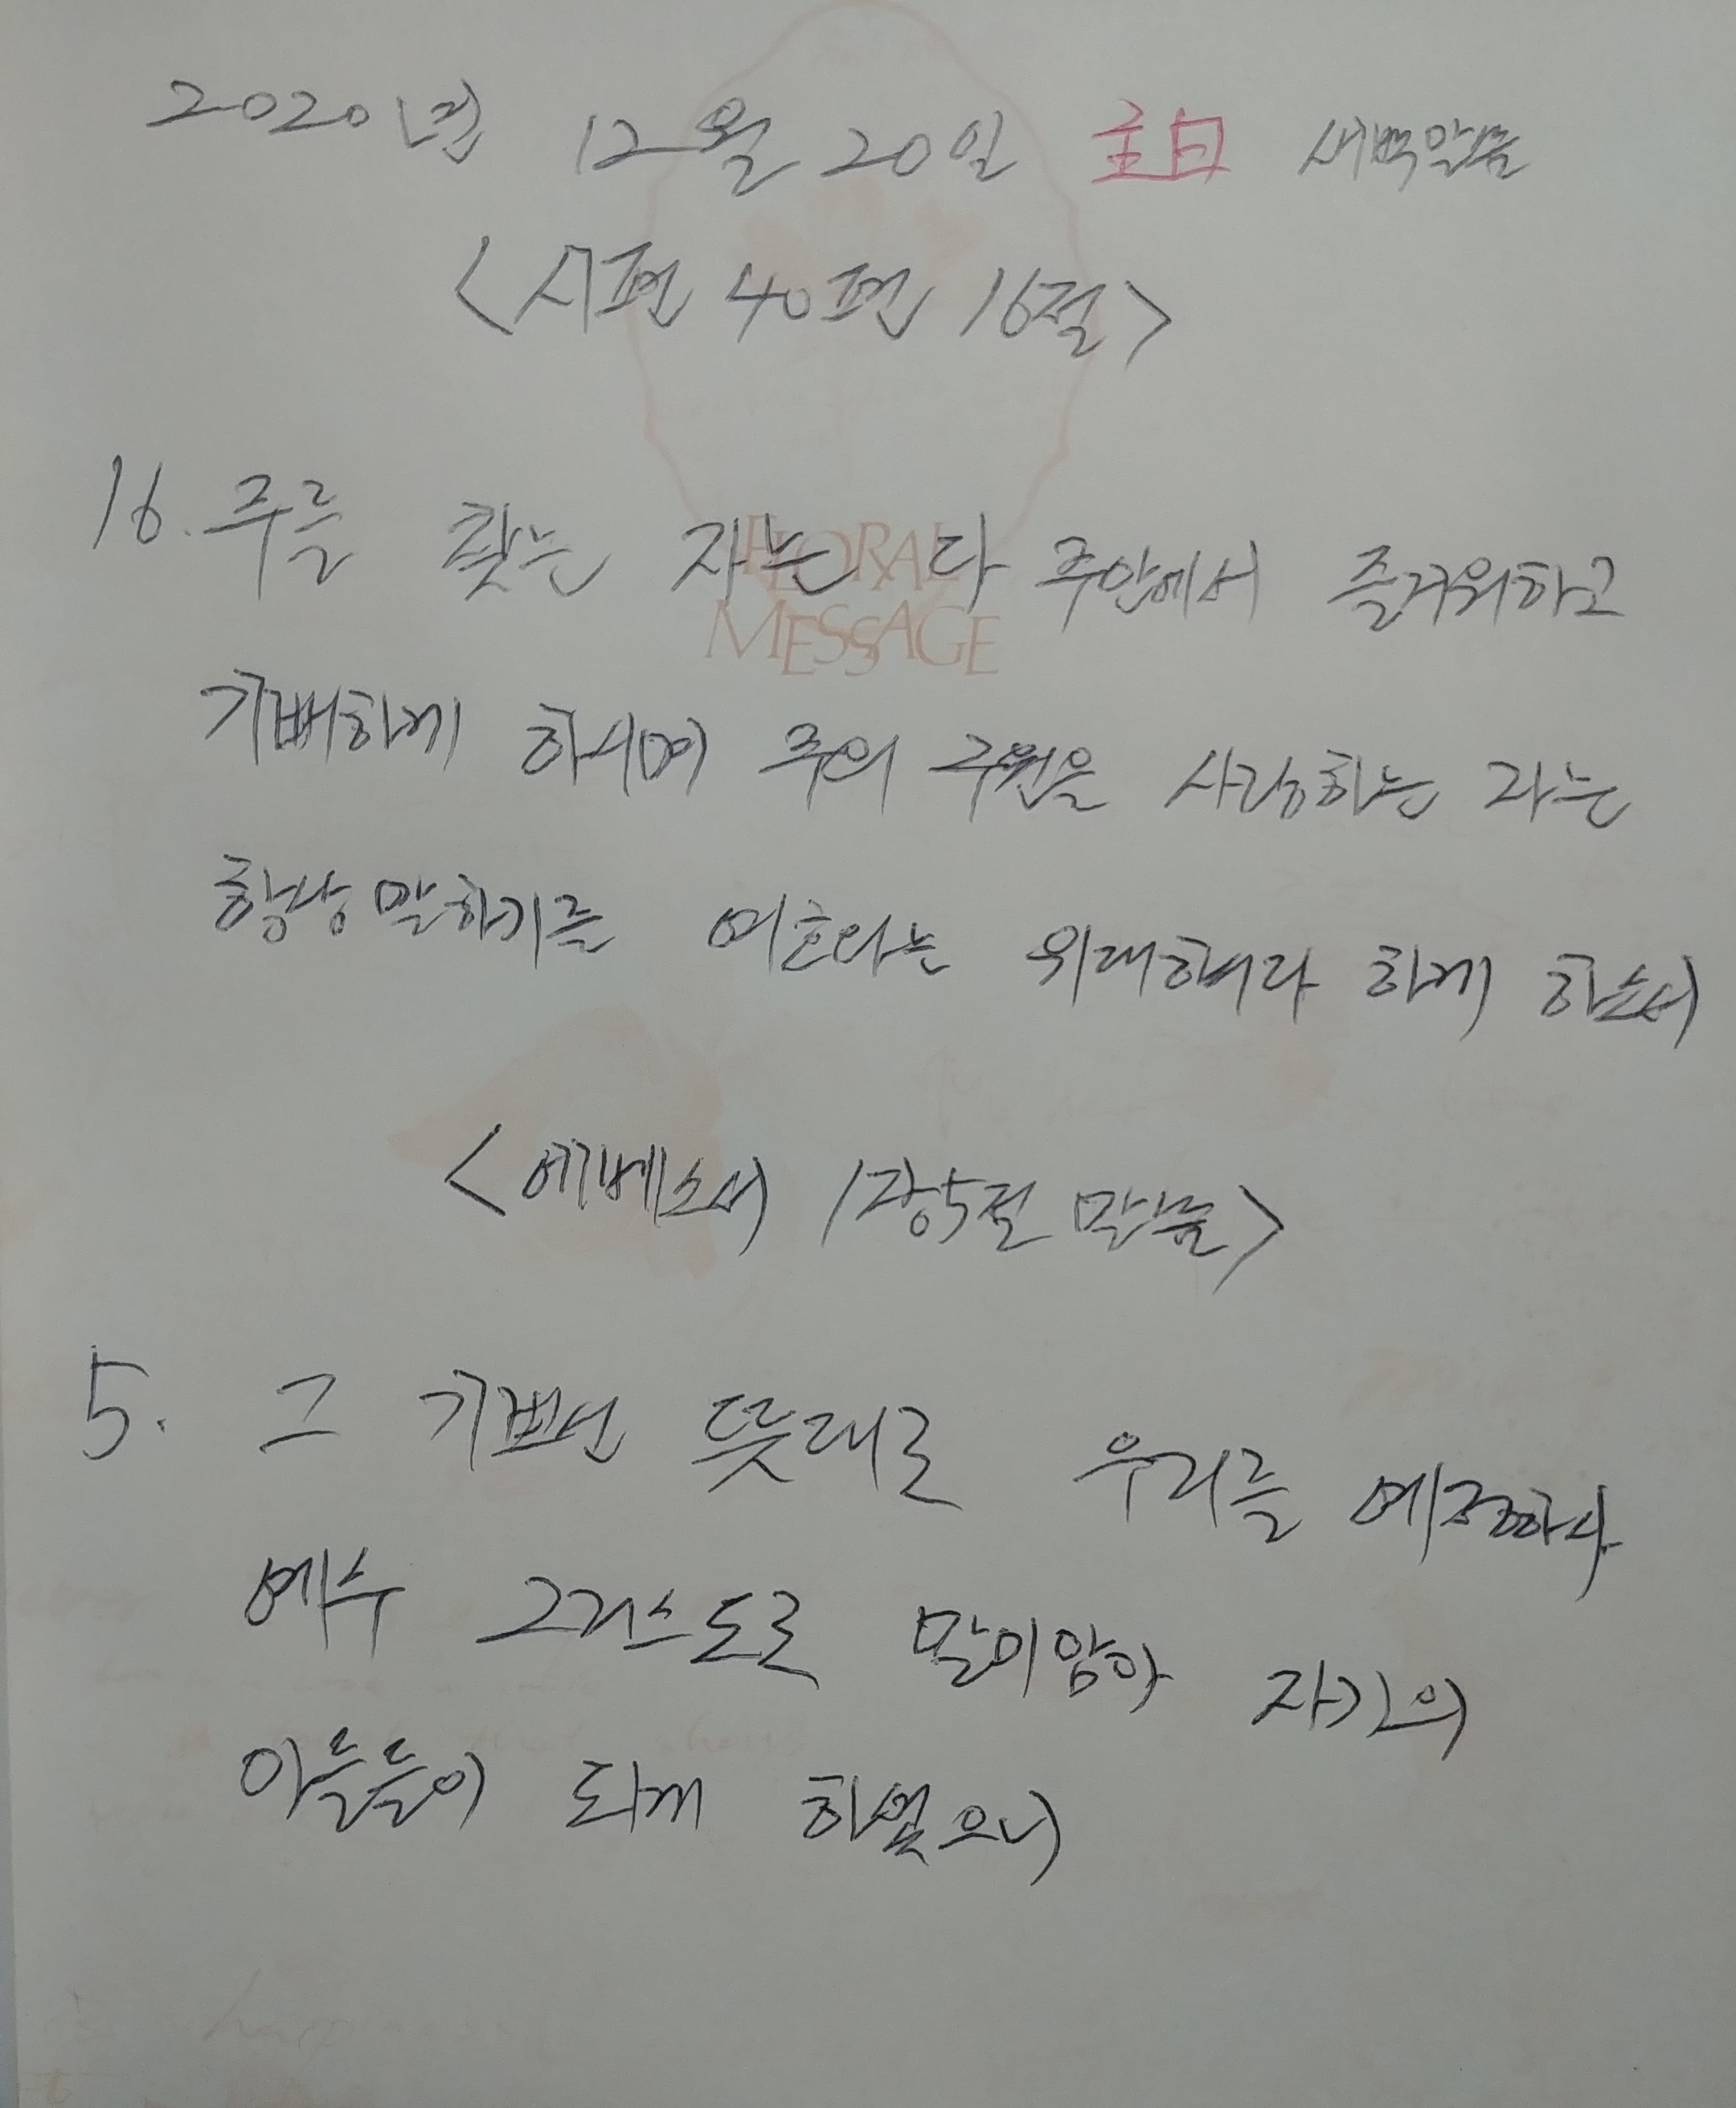 2020년 12월 20일 主日 새벽말씀
<시편 40편 16절>
16. 주를 찾는 자는 다 주안에서 즐거워하고
FLORAL
MESSAGE
기뻐하게 하시며 주의 구원을 사랑하는 자는
항상 말하기를 여호와는 위대하시다 하게 하소서
<에베소서 1장5절 말씀>
5. 그 기쁘신 뜻대로 우리를 예정하사
예수 그리스도로 말미암아 자기의
아들들이 되게 하셨으니